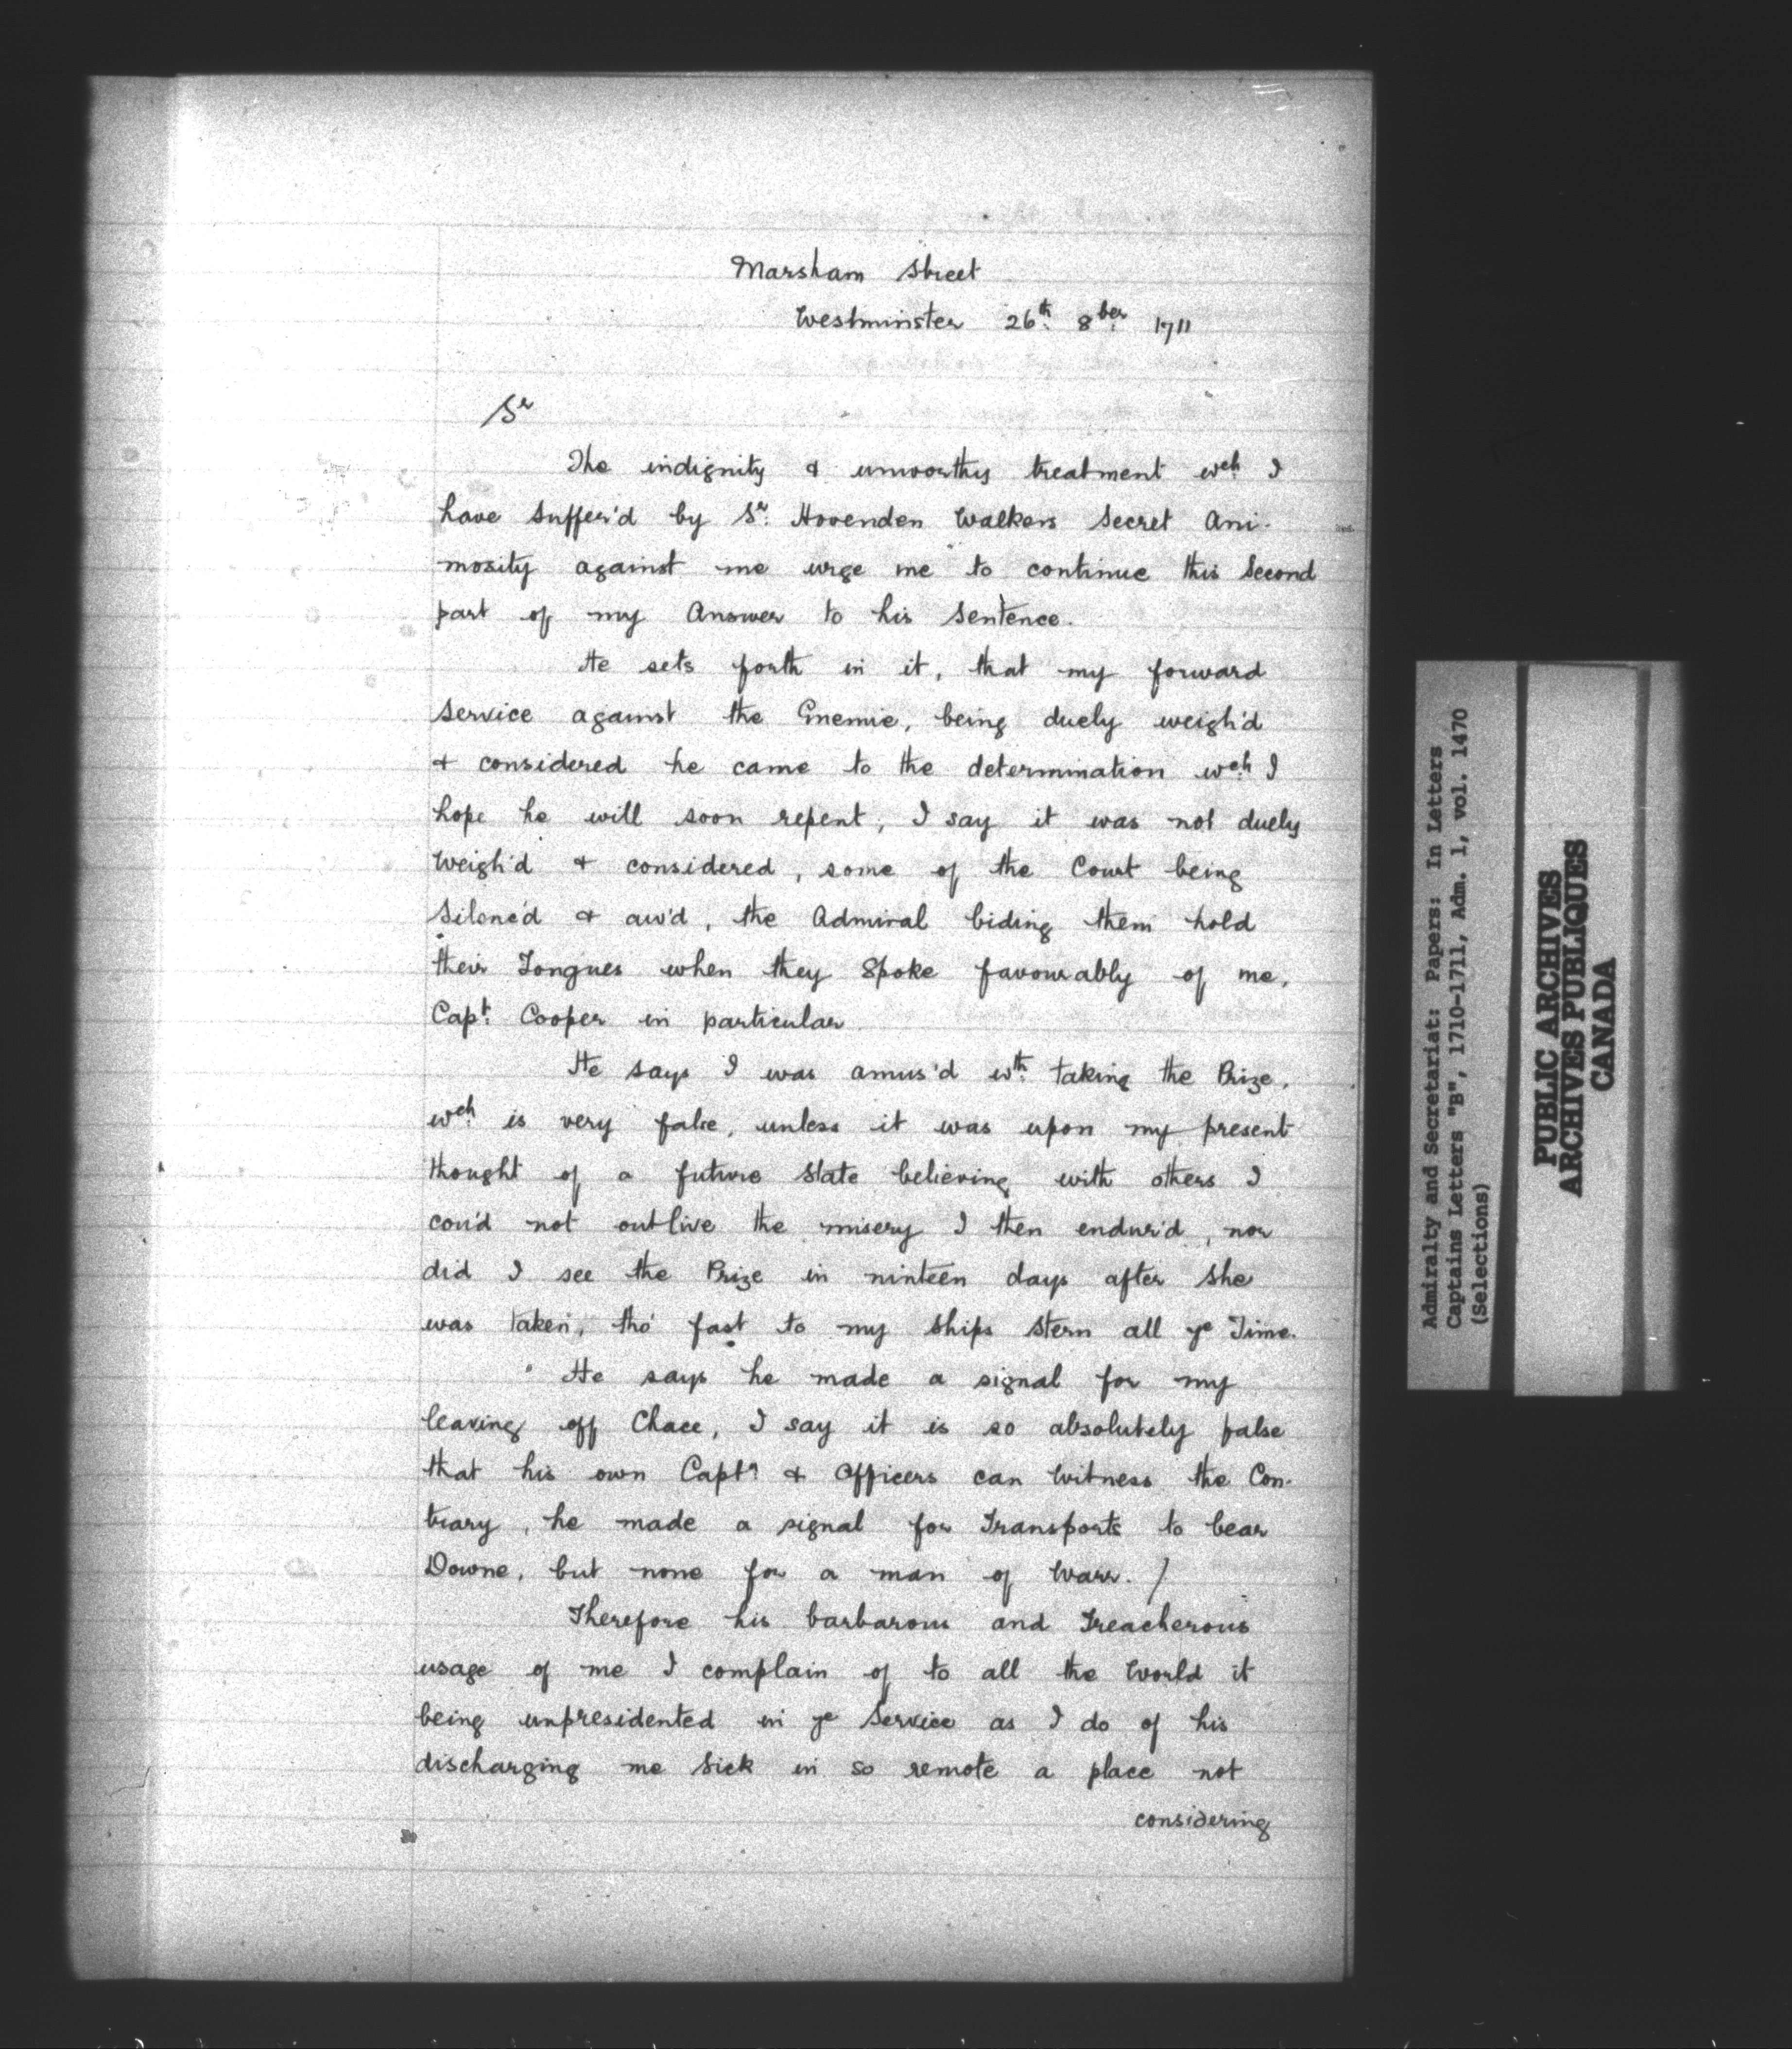 Marsham Street
Westminster 26th. 8ber. 1711
Sr
The indignity & unworthy treatment wch. I
have suffer'd by Sr. Hovenden Walkers Secret Ani-
mosity against me urge me to continue this Second
part of my Answer to his Sentence.
He sets forth in it, that my forward
Service against the Enemie, being duely weigh'd
& considered he came to the determination wch. I
hope he will soon repent, I say it was not duely
Weigh'd & considered, some of the Court being
Silenc'd & aw'd, the Admiral biding them hold
their Tongues when they Spoke favourably of me,
Capt. Cooper in particular
He says I was amus'd wth. taking the Prize,
wch. is very false, unless it was upon my present
thought of a future State believing with others I
cou'd not outlive the misery I then endur'd, nor
did I see the Prize in ninteen days after She
was taken, tho' fast to my Ships Stern all ye Time.
He says he made a signal for my
leaving off Chace, I say it is so absolutely false
that his own Captn & Officers can Witness the Con-
trary, he made a signal for Transports to bear
Downe, but none for a man of Warr. /
Therefore his barbarous and Treacherous
usage of me I complain of to all the World it
being unpresidented in ye Service as I do of his
discharging me Sick in so remote a place not
considering
Admiralty and Secretariat: Papers: In Letters
Captains Letters "B", 1710-1711, Adm. 1, vol. 1470
(Selections)
PUBLIC ARCHIVES
ARCHIVES PUBLIQUES
CANADA